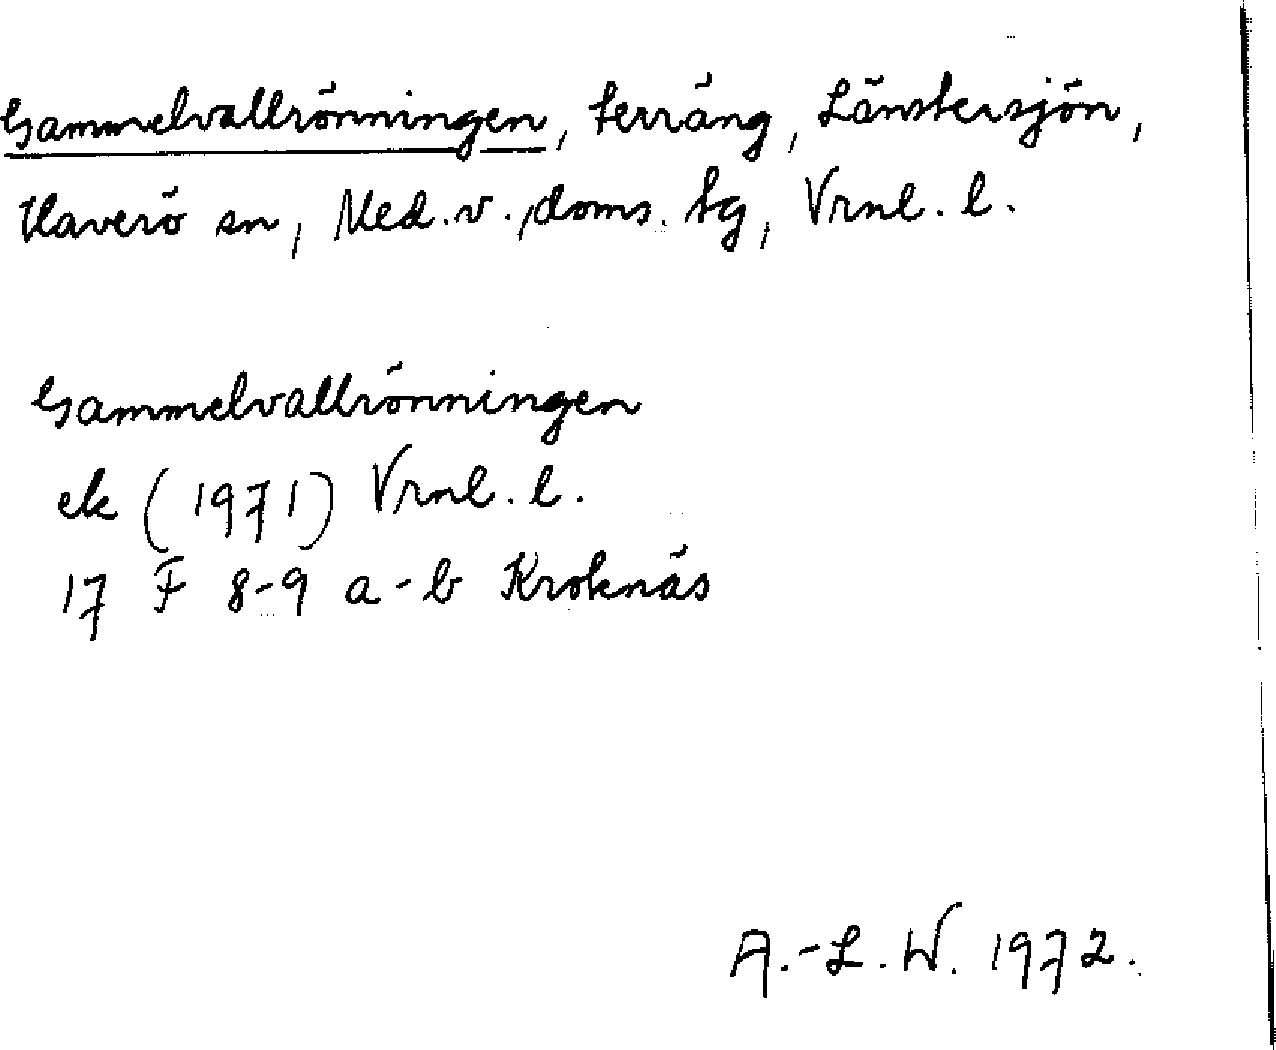 Gammelvallrönningen, terräng, Länstersjön,
Haverö sn, Med. v., doms. tg, Vrnl. l.
Gammelvallrönningen
ek (1971) Vrnl. l.
17 F 8-9 a-b Kroknäs
A.-L. W. 1972.